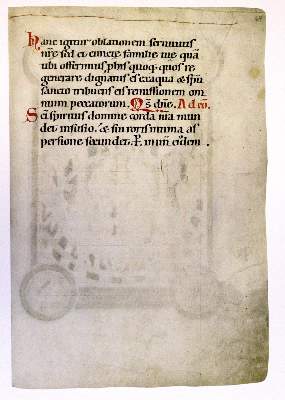 Hanc igitur oblationem servitutis
nr̄e sed et cuncte familie tue quā
tibi offerimus p̄ his quoq; quos re
generare dignatus es ex aqua & sp̄u
sancto tribuens eis remissionem om
nium peccatorum. Q̄s dn̄e. Ad cō.
Sc̄s spiritus domine corda n̄ra mun
det infusio. & sui roris intima as
persione fecundet. P̄